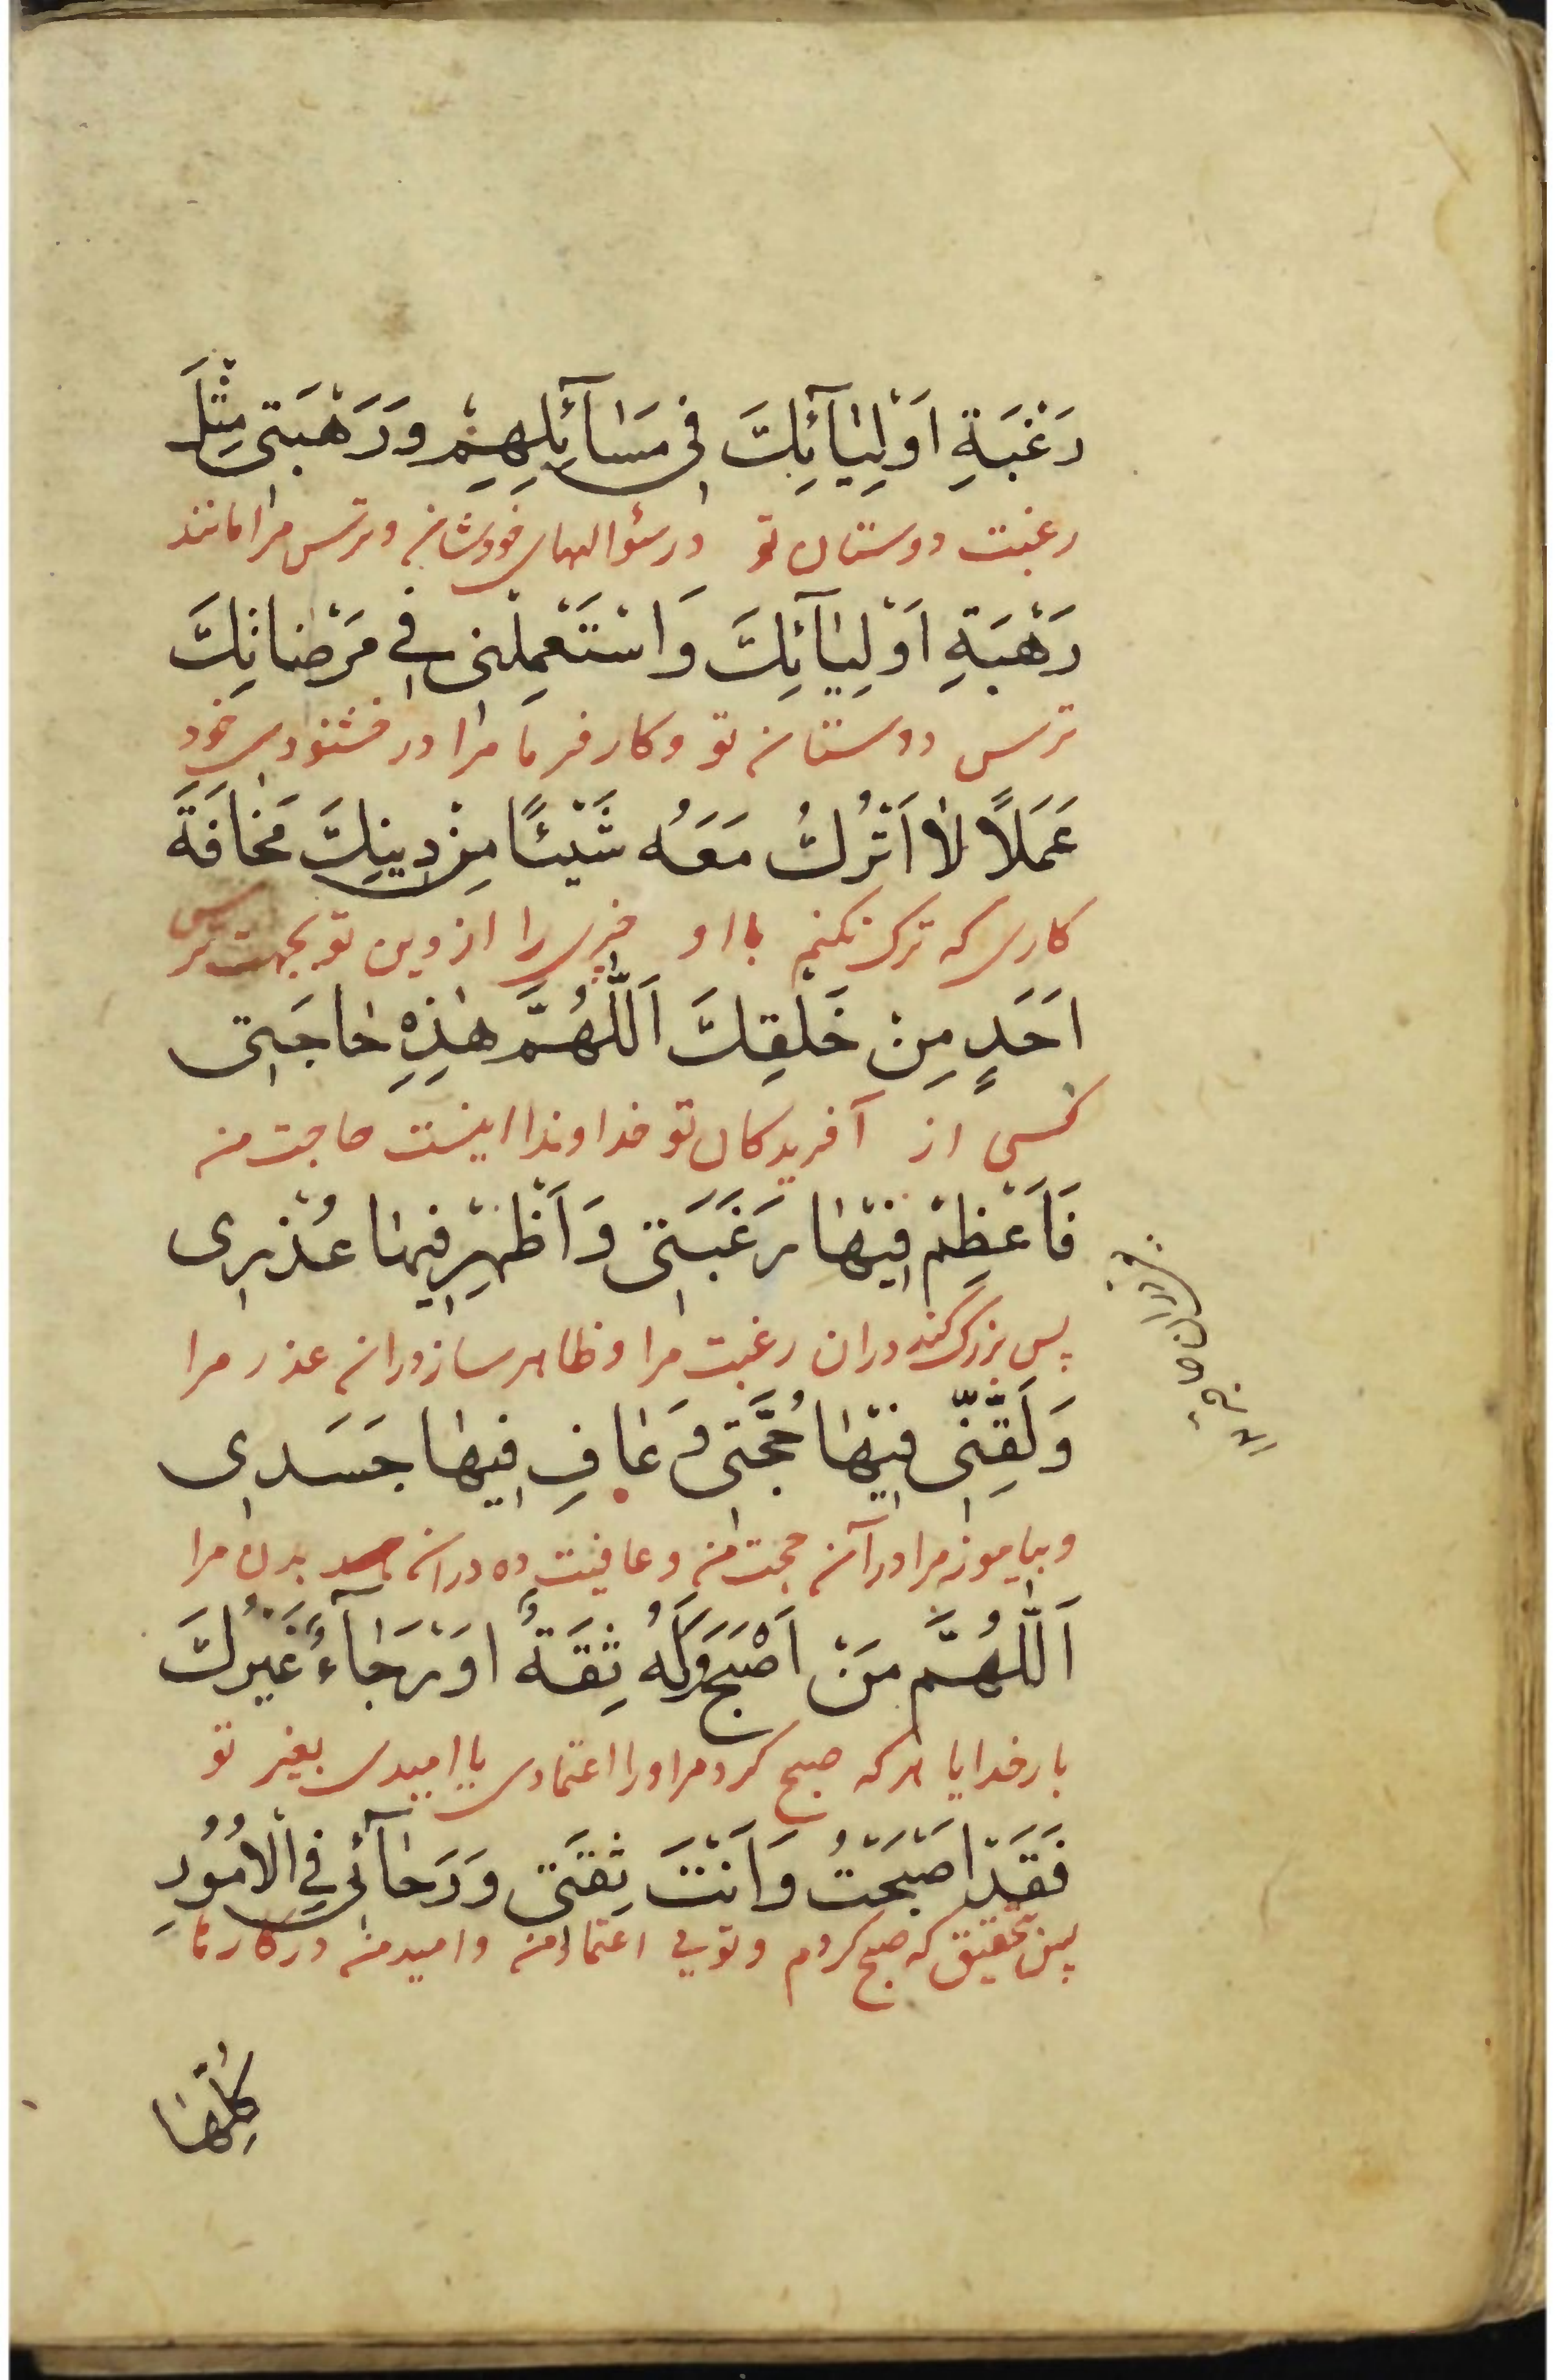 رَغْبَةِ اَوْلِيٰآئِكَ فِى مَسٰآئِلِهِمْ وَرَهْبَتِى مِثْلَ
رغبت دوستان تو در سؤالهای خودشان و ترس مرا مانند
رَهْبَةِ اَوْلِيٰآئِكَ وَاسْتَعْمِلْنِى فِى مَرْضٰاتِكَ
ترس دوستان تو و کار فرما مرا در خشنودی خود
عَمَلًا لٰا اَتْرُكُ مَعَهُ شَيْئًا مِنْ دِينِكَ مَخٰافَةَ
کاری که ترک نکنم با او چیزی را از دین تو بجهت ترس
اَحَدٍ مِنْ خَلْقِكَ اَللّٰهُمَّ هٰذِهِ حٰاجَتِى
کسی از آفریدکان تو خداوندا اینست حاجت من
فَاَعْظِمْ فِيْهٰا رَغْبَتِى وَاَظْهِرْ فِيهٰا عُذْرِى
پس بزرگ کن دران رغبت مرا و ظاهر ساز دران عذر مرا
وَلَقِّنِّى فِيْهٰا حُجَّتِى وَعٰافِ فِيهٰا جَسَدِى
و بیاموز مرا در آن حجت من و عافیت ده دران بدن مرا
اَللّٰهُمَّ مَنْ اَصْبَحَ وَلَهُ ثِقَةٌ اَوْ رَجٰآءٌ غَيْرُكَ
بار خدایا هر که صبح کرد مر او را اعتمادی یا امیدی بغیر تو
فَقَدْ اَصْبَحْتُ وَاَنْتَ ثِقَتِى وَرَجٰآئِى فِى الْاُمُوْرِ
پس بتحقیق که صبح کردم و توئی اعتماد من و امید من در کارها
كُلِّهٰا